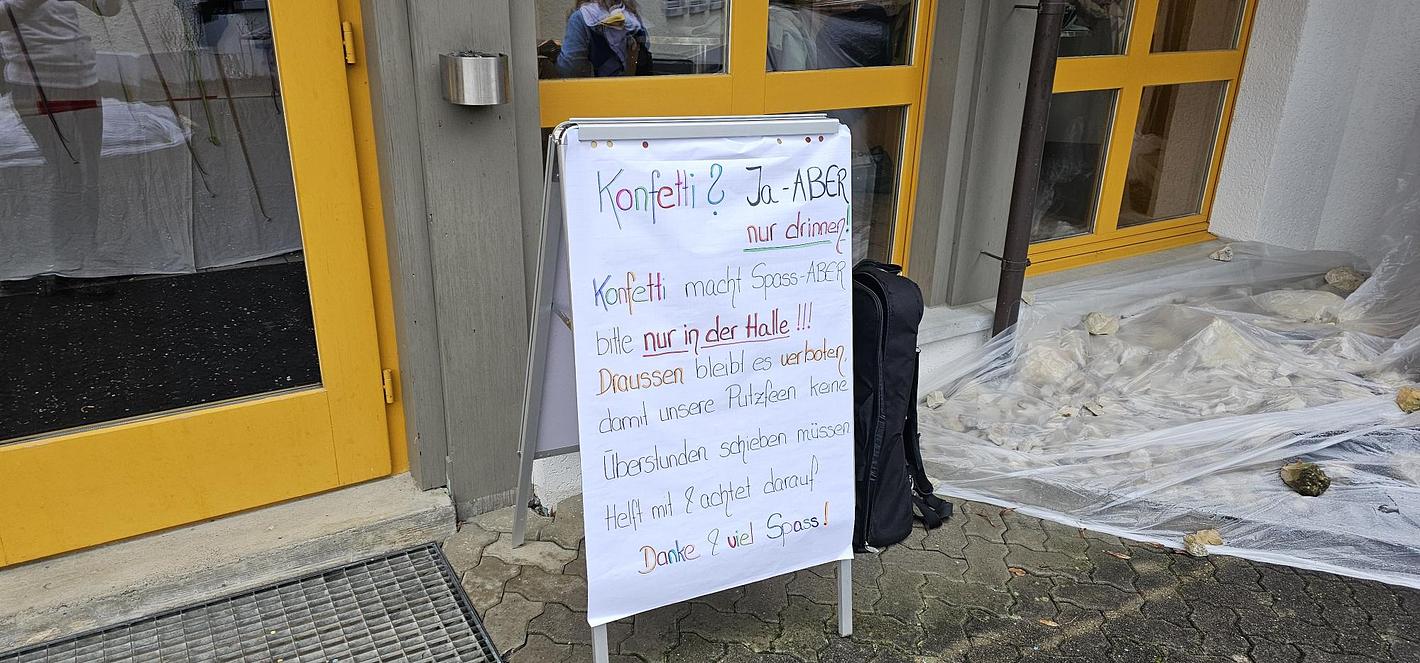 Konfetti? Ja - ABER
nur drinnen!
Konfetti macht Spass - ABER
bitte nur in der Halle!!!
Draussen bleibt es verboten,
damit unsere Putzfeen keine
Überstunden schieben müssen
Helft mit & achtet darauf
Danke & viel Spass!